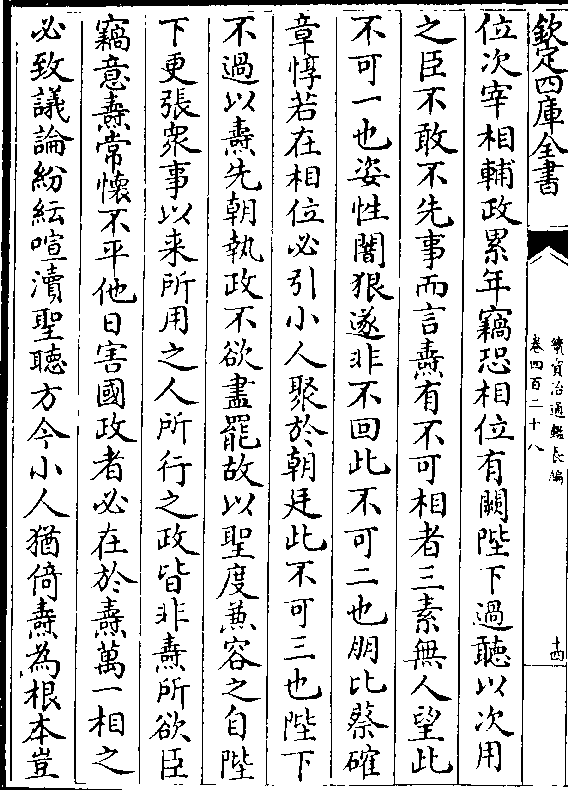 欽定四庫全書
續資治通鑑長編
卷四百二十八
十四
位次宰相輔政累年竊恐相位有闕陛下過聽以次用
之臣不敢不先事而言燾有不可相者三素無人望此
不可一也姿性闇狠遂非不回此不可二也朋比蔡確
章惇若在相位必引小人聚於朝廷此不可三也陛下
不過以燾先朝執政不欲盡罷故以聖度兼容之自陛
下更張衆事以来所用之人所行之政皆非燾所欲臣
竊意燾常懷不平他日害國政者必在於燾萬一相之
必致議論紛紜喧瀆聖聽方今小人猶倚燾為根本豈